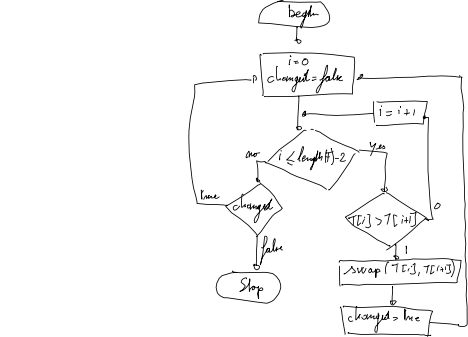 begin
i=0
changed=false
i=i+1
i ≤ length(T)-2
no
yes
true
changed
T[i]>T[i+1]
0
false
1
Stop
swap(T[i],T[i+1])
changed=true